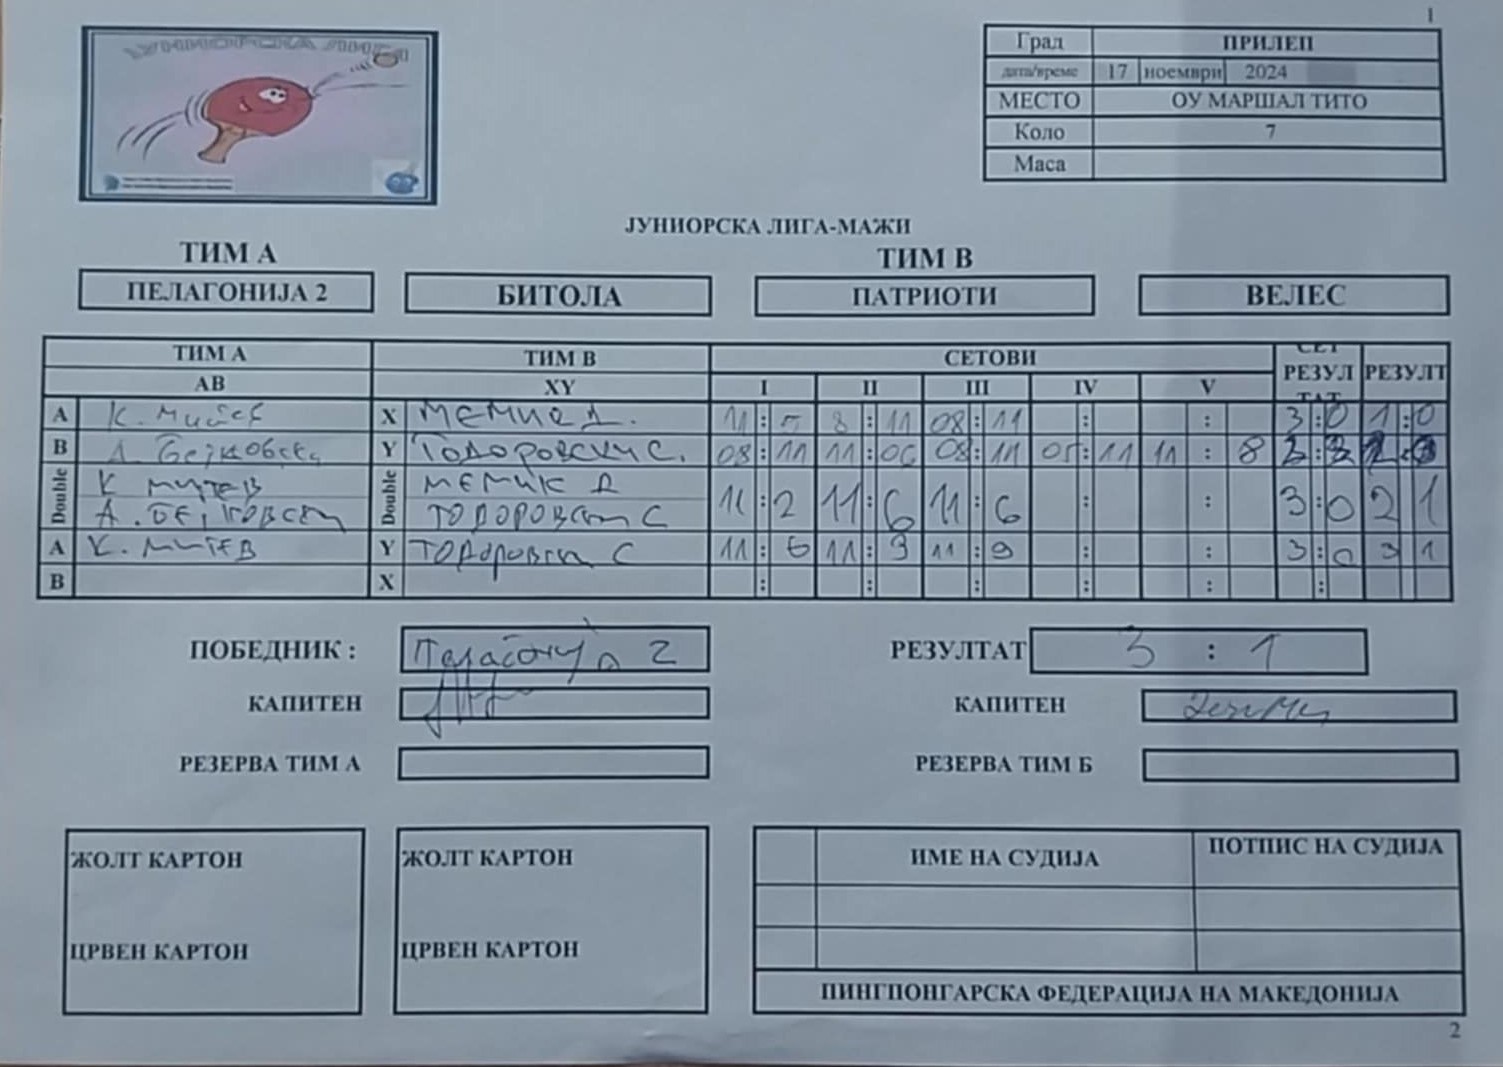 1
ЈУНИОРСКА ЛИГА
Град ПРИЛЕП
дата/време 17 ноември 2024
МЕСТО ОУ МАРШАЛ ТИТО
Коло 7
Маса
ЈУНИОРСКА ЛИГА-МАЖИ
ТИМ А ТИМ В
ПЕЛАГОНИЈА 2 БИТОЛА ПАТРИОТИ ВЕЛЕС
ТИМ А ТИМ В СЕТОВИ СЕТ РЕЗУЛТАТ РЕЗУЛТ
АВ XY I II III IV V
A К. Митев X МЕМИК Д. 11 : 5 8 : 11 08 : 11 : : 3 : 0 1 : 0
B Y ТОДОРОВСКИ С. 08 : 11 11 : 06 08 : 11 05 : 11 11 : 8
Double К МИТЕВ Double МЕМИК Д
11 : 2 11 : 6 11 : 6 : : 3 : 0 2 1
ТОДОРОВСКИ С
A К. МИТЕВ Y ТОДОРОВСКИ С 11 : 6 11 : 9 11 : 9 : : 3 : 0 3 1
B X : : : : : :
ПОБЕДНИК : Пелагонија 2 РЕЗУЛТАТ 3 : 1
КАПИТЕН КАПИТЕН
РЕЗЕРВА ТИМ А РЕЗЕРВА ТИМ Б
ЖОЛТ КАРТОН ЖОЛТ КАРТОН ИМЕ НА СУДИЈА ПОТПИС НА СУДИЈА
ЦРВЕН КАРТОН ЦРВЕН КАРТОН
ПИНГПОНГАРСКА ФЕДЕРАЦИЈА НА МАКЕДОНИЈА
2